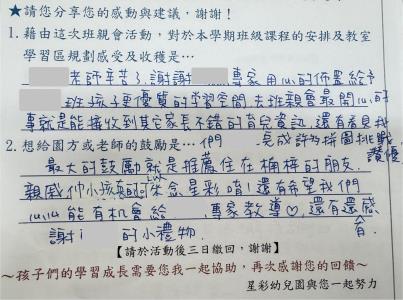 ★請您分享您的感動與建議，謝謝！
1. 藉由這次班親會活動，對於本學期班級課程的安排及教室
學習區規劃感受及收穫是…
老師辛苦了、謝謝 專家用心的佈置給予
班孩子更優質的學習空間 去班親會最開心的
事就是能接收到其它家長不錯的育兒資訊，還有看見我
2. 想給園方或老師的鼓勵是… 們 完成許多拼圖挑戰
讚
最大的鼓勵就是推薦住在楠梓的朋友、
親戚 小孩 來念星彩唷！還有希望我們
能有機會給 專家教導♡，還有還感
謝 的小禮物
【請於活動後三日繳回，謝謝】
～孩子們的學習成長需要您我一起協助，再次感謝您的回饋～
星彩幼兒園與您一起努力